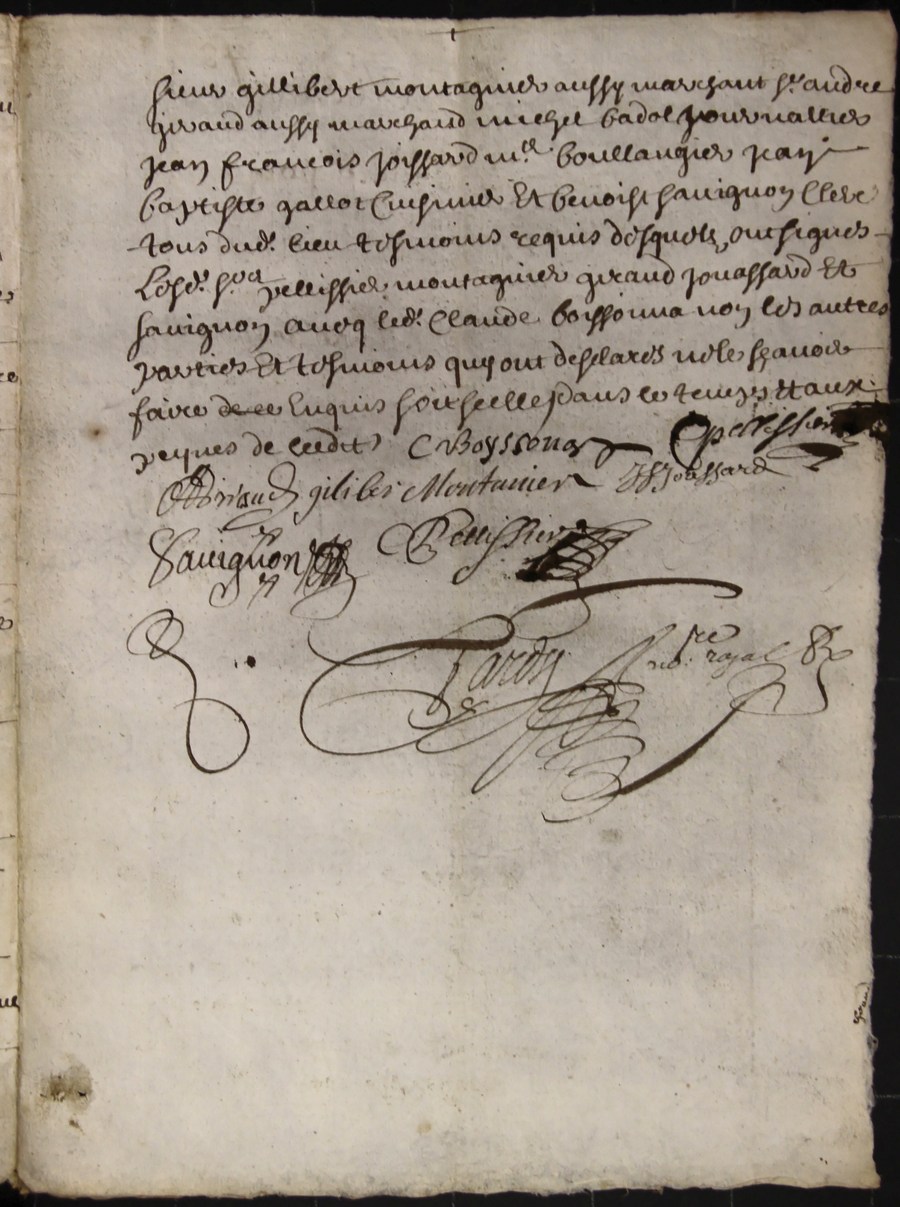 sieur gillibert montagnier aussy marchant sr andre
giraud aussy marchand michel badol journallier
jean francois joissard mtre boullangier jean
baptiste gallot Cuisinier Et benoist sauignon Clerc
tous dudt lieu tesmoins requis desquels ont signes
Lesdt srs pellissier montagnier giraud jouassard Et
sauignon auecq ledt Claude boissonna non les autres
parties Et tesmoins quy ont desclares ne le sçauoir
faire de ce Enquis soit scelle dans le temps Et aux
peynes de leedit CBoyssona Cpellissier
AGiraud giliber Montanier JFJoassard
Sauignon Pellissier
Tardy nore royal